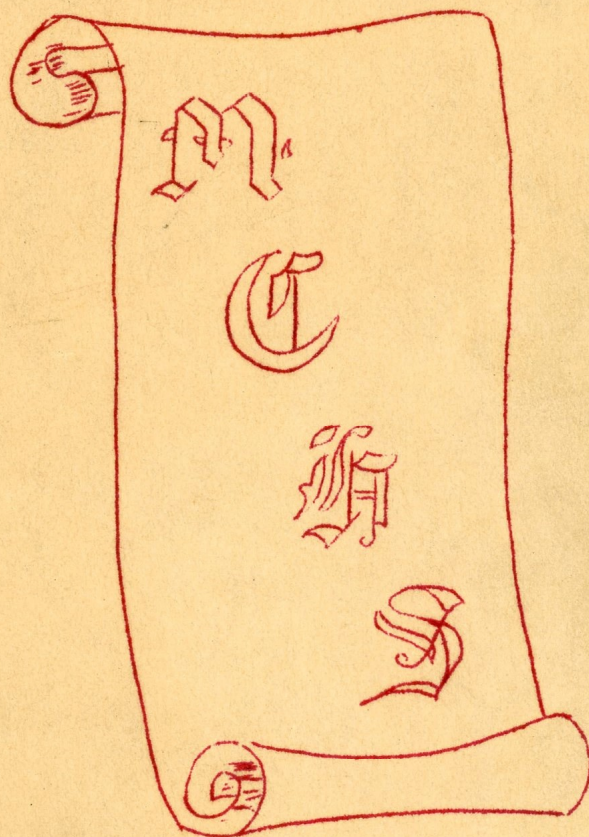 M
C
H
S